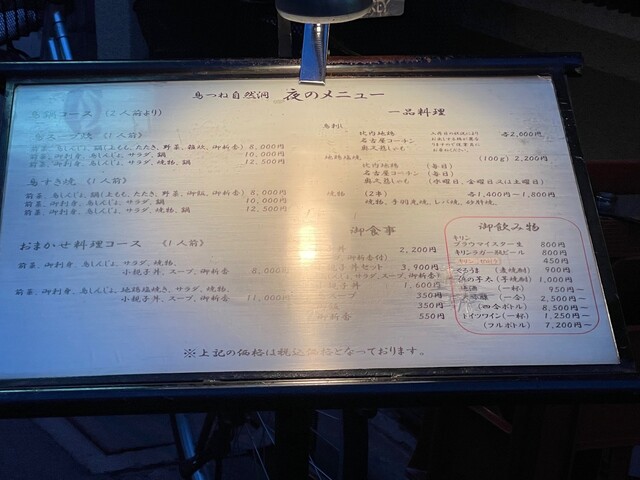 鳥つね自然洞 夜のメニュー
鳥鍋コース (2人前より)
鳥スープ焼 (1人前)
前菜、鳥しんじょ、鍋(上もも、たたき、野菜、雑炊、御新香) 8,000円
前菜、御刺身、鳥しんじょ、サラダ、鍋 10,000円
前菜、御刺身、鳥しんじょ、サラダ、焼物、鍋 12,500円
鳥すき焼 (1人前)
前菜、鳥しんじょ、鍋(上もも、たたき、野菜、御飯、御新香) 8,000円
前菜、御刺身、鳥しんじょ、サラダ、鍋 10,000円
前菜、御刺身、鳥しんじょ、サラダ、焼物、鍋 12,500円
おまかせ料理コース (1人前)
前菜、御刺身、鳥しんじょ、サラダ、焼物、
小親子丼、スープ、御新香 8,000円
前菜、御刺身、鳥しんじょ、地鶏塩焼き、サラダ、焼物、
小親子丼、スープ、御新香 11,000円
一品料理
鳥刺し 比内地鶏 各2,600円
名古屋コーチン
奥久慈しゃも
地鶏塩焼 (100g) 2,200円
比内地鶏 (毎日)
名古屋コーチン (毎日)
奥久慈しゃも (水曜日、金曜日又は土曜日)
焼物 (2串) 各1,400円~1,800円
焼物、手羽先焼、レバ焼、砂肝焼
御食事
丼 2,200円
丼セット 3,900円
サラダ、スープ、御新香)
子丼 1,600円
スープ 350円
350円
御新香 550円
御飲み物
キリン
ブラウマイスター生 800円
キリンラガー瓶ビール 800円
450円
(麦焼酎) 900円
(芋焼酎) 1,000円
(一杯) 950円~
(一合) 2,500円~
(四合ボトル) 8,500円~
ドイツワイン(一杯) 1,250円~
(フルボトル) 7,200円~
※上記の価格は税込価格となっております。